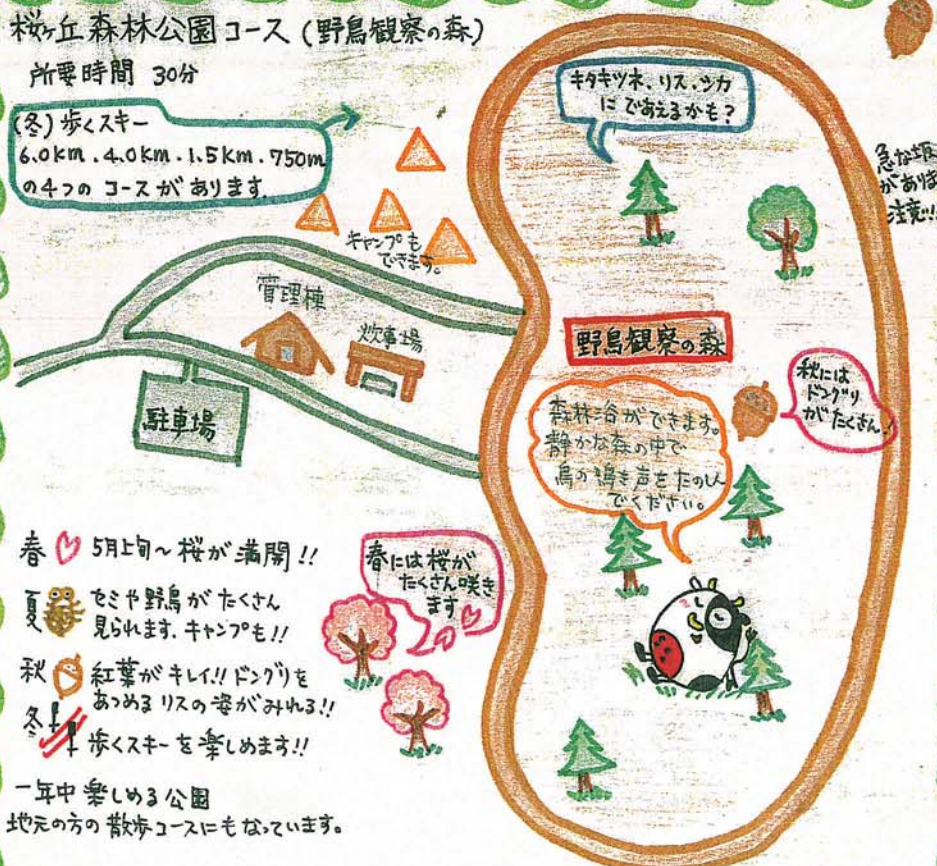 桜ヶ丘森林公園コース(野鳥観察の森)
所要時間 30分
(冬)歩くスキー
6.0km.4.0km.1.5km.750m
の4つのコースがあります。
キャンプも
できます。
管理棟
炊事場
駐車場
キタキツネ、リス、シカ
にであえるかも?
急な坂
がありま
注意!!
野鳥観察の森
秋には
ドングリ
がたくさん!
森林浴ができます。
静かな森の中で
鳥の鳴き声をたのしん
でください。
春には桜が
たくさん咲き
ます
春 5月上旬~桜が満開!!
夏 セミや野鳥がたくさん
見られます.キャンプも!!
秋 紅葉がキレイ!!ドングリを
あつめるリスの姿がみれる!!
冬 歩くスキーを楽しめます!!
一年中楽しめる公園
地元の方の散歩コースにもなっています。